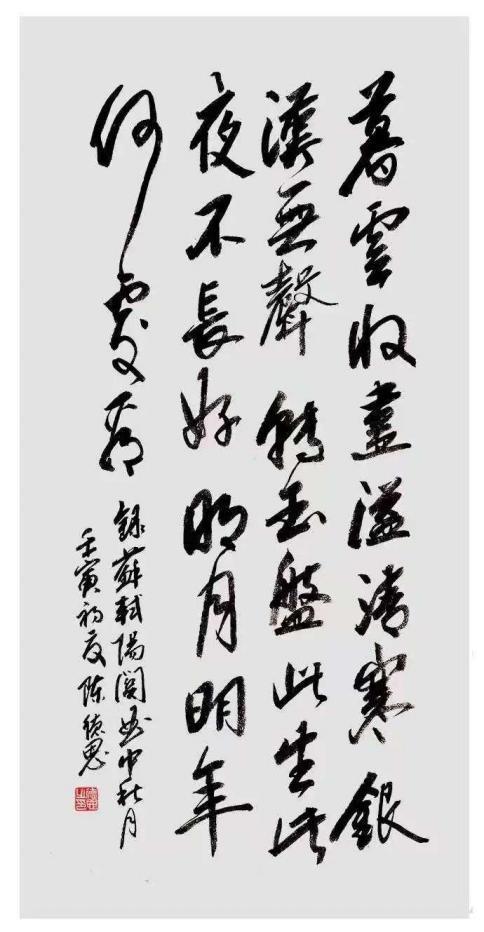 暮雲收盡溢清寒銀
漢無聲轉玉盤此生此
夜不長好明月明年
何處看
錄蘇軾陽關曲中秋月
壬寅初夏陳德思